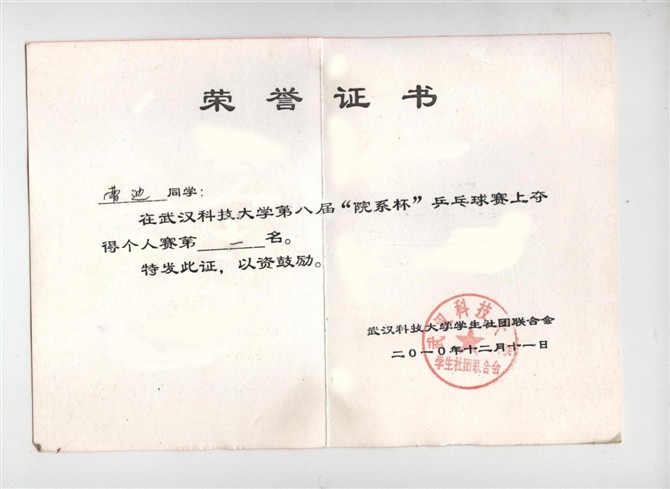 荣誉证书
曹迪 同学：
在武汉科技大学第八届“院系杯”乒乓球赛上夺
得个人赛第 一 名。
特发此证，以资鼓励。
武汉科技大学学生社团联合会
二〇一〇年十二月十一日
武汉科技大
学生社团联合会